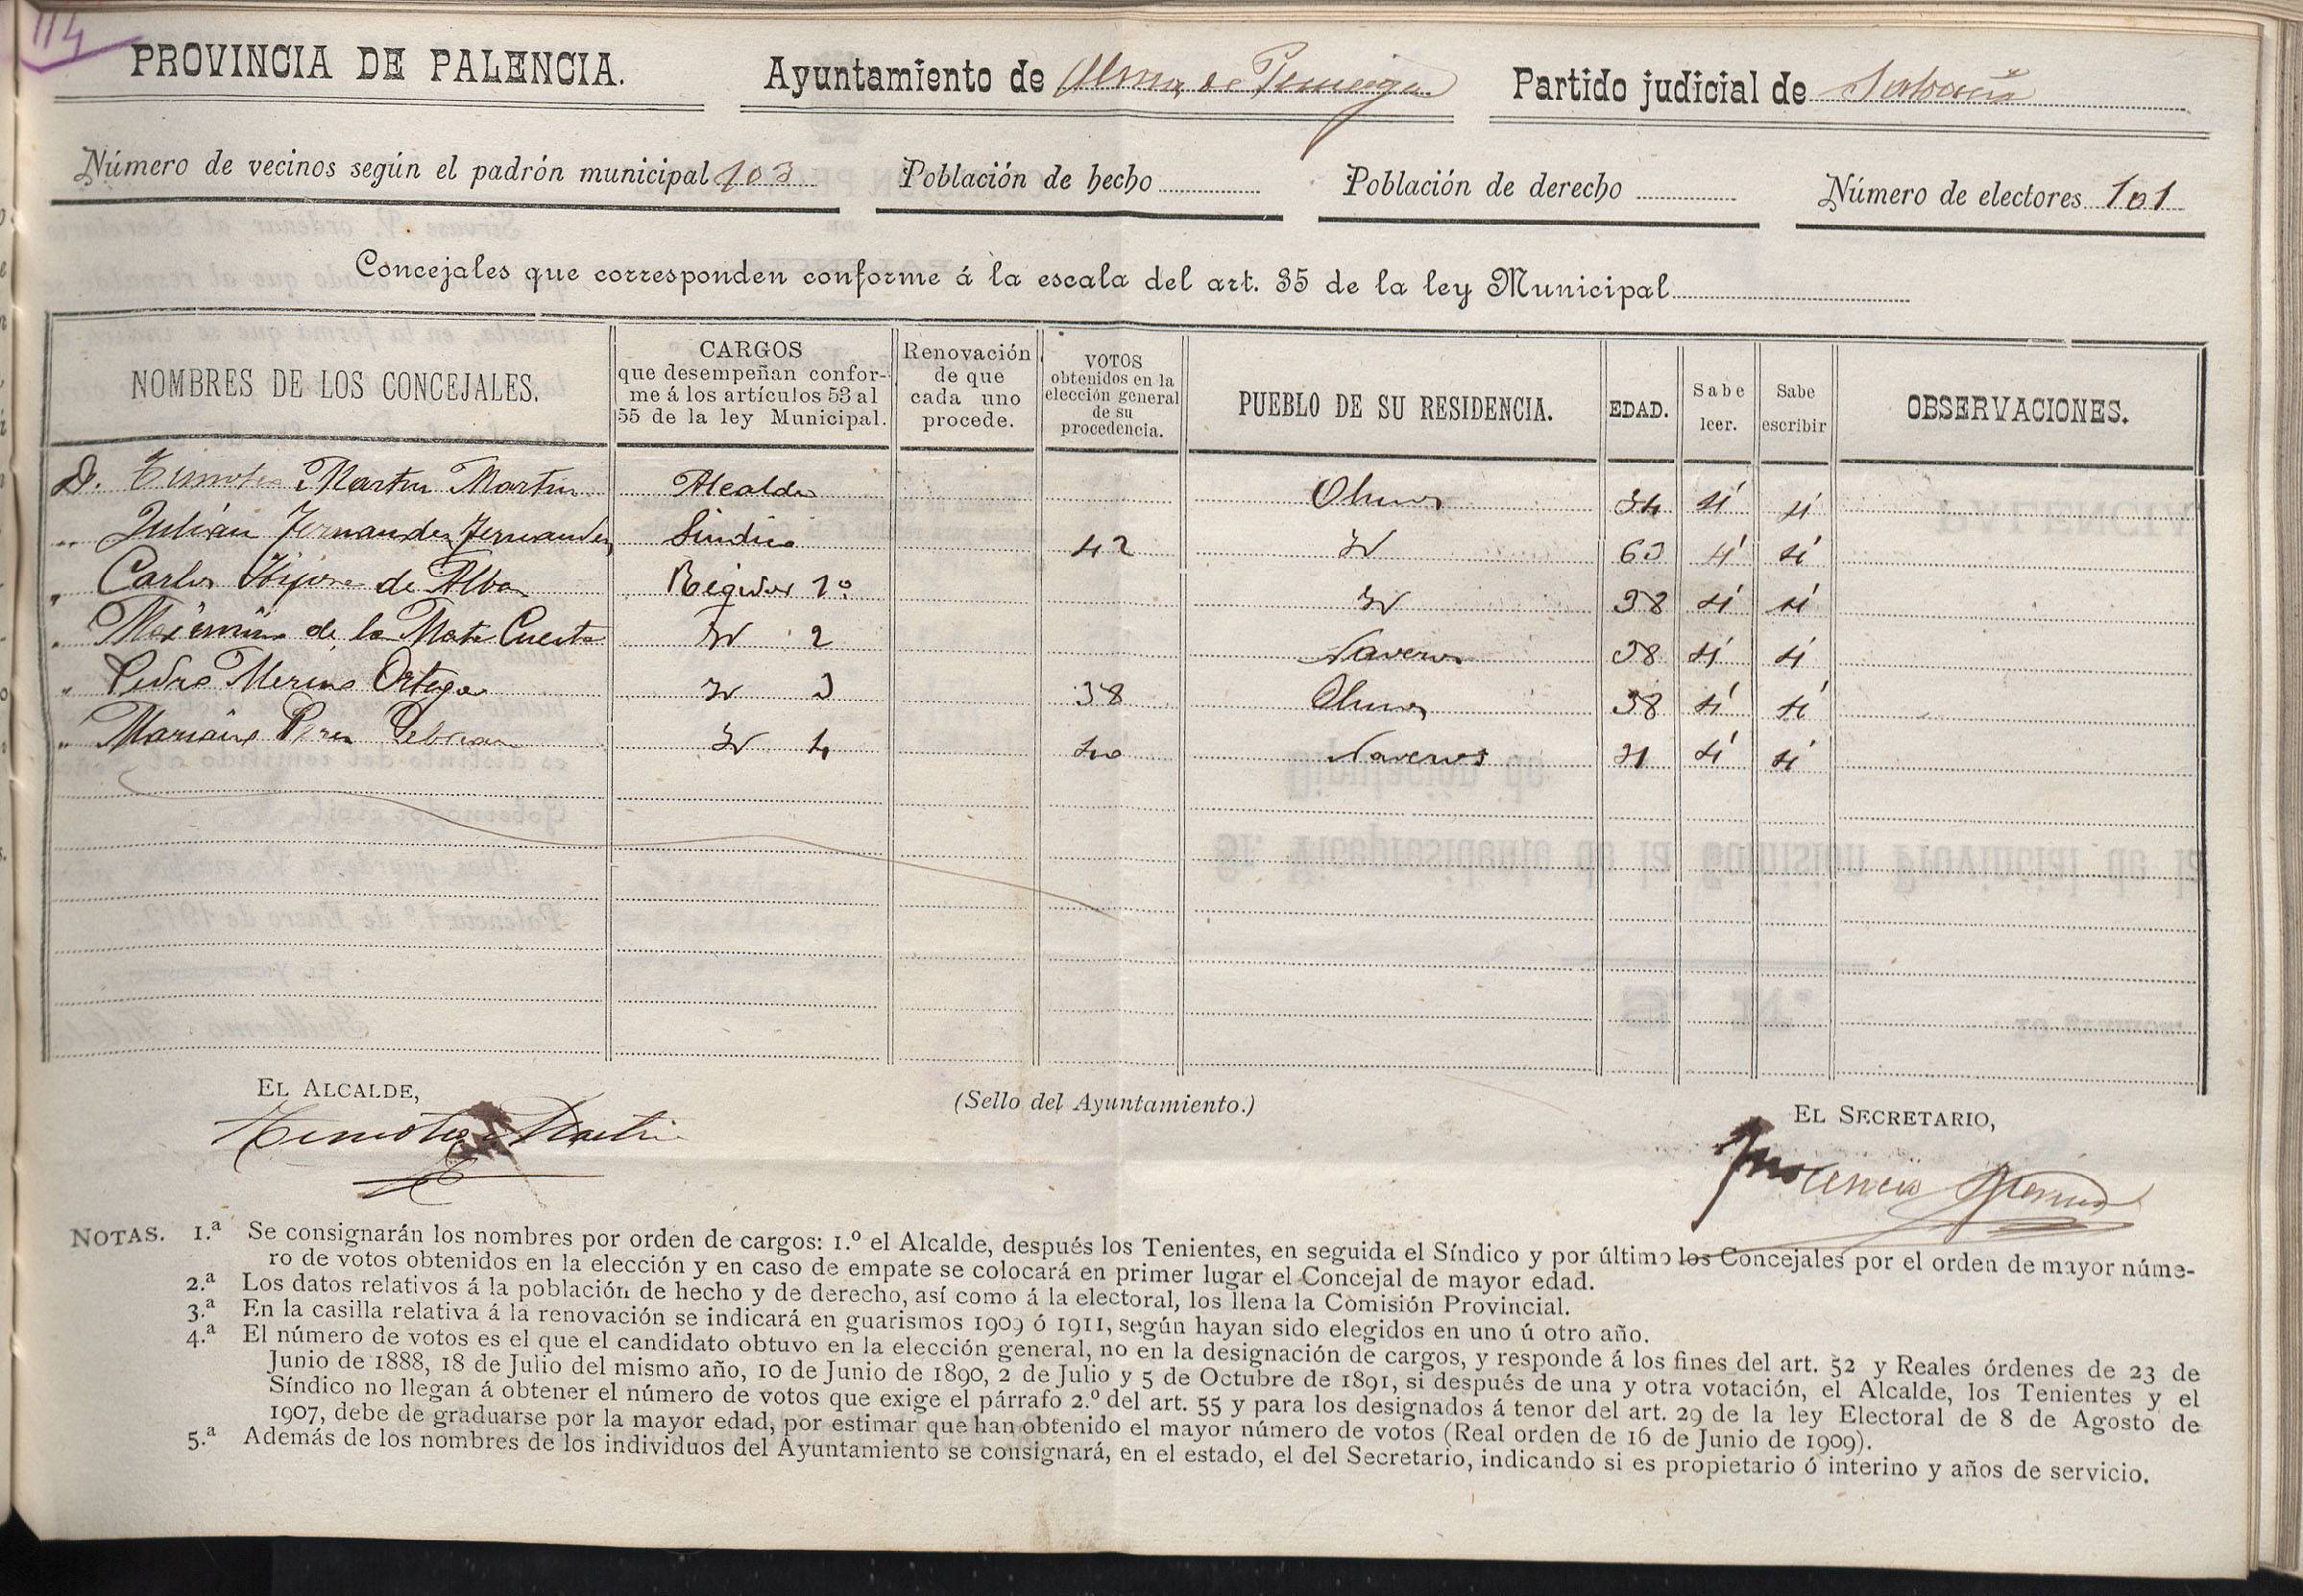 114
PROVINCIA DE PALENCIA. Ayuntamiento de Olmos de Pisuerga Partido judicial de Saldaña
Número de vecinos según el padrón municipal 103 Población de hecho Población de derecho Número de electores 101
Concejales que corresponden conforme á la escala del art. 35 de la ley Municipal
NOMBRES DE LOS CONCEJALES. CARGOS que desempeñan conforme á los artículos 53 al 55 de la ley Municipal. Renovación de que cada uno procede. VOTOS obtenidos en la elección general de su procedencia. PUEBLO DE SU RESIDENCIA. EDAD. Sabe leer. Sabe escribir OBSERVACIONES.
D. Timoteo Martin Martin Alcalde Olmos 34 si si
" Julián Fernandez Fernandez Sindico 42 Id 63 si si
" Carlos de Alba Regidor 1º Id 38 si si
" Maximino de la Mata Cuesta Id 2 Naveros 38 si si
" Pedro Merino Ortega Id 3 38 Olmos 38 si si
" Mariano Perez Cebrian Id 4 40 Naveros 31 si si
EL ALCALDE, (Sello del Ayuntamiento.) EL SECRETARIO,
Timoteo Martin Inocencio
NOTAS. 1.ª Se consignarán los nombres por orden de cargos: 1.º el Alcalde, después los Tenientes, en seguida el Síndico y por último los Concejales por el orden de mayor núme-
ro de votos obtenidos en la elección y en caso de empate se colocará en primer lugar el Concejal de mayor edad.
2.ª Los datos relativos á la población de hecho y de derecho, así como á la electoral, los llena la Comisión Provincial.
3.ª En la casilla relativa á la renovación se indicará en guarismos 1909 ó 1911, según hayan sido elegidos en uno ú otro año.
4.ª El número de votos es el que el candidato obtuvo en la elección general, no en la designación de cargos, y responde á los fines del art. 52 y Reales órdenes de 23 de
Junio de 1888, 18 de Julio del mismo año, 10 de Junio de 1890, 2 de Julio y 5 de Octubre de 1891, si después de una y otra votación, el Alcalde, los Tenientes y el
Síndico no llegan á obtener el número de votos que exige el párrafo 2.º del art. 55 y para los designados á tenor del art. 29 de la ley Electoral de 8 de Agosto de
1907, debe de graduarse por la mayor edad, por estimar que han obtenido el mayor número de votos (Real orden de 16 de Junio de 1909).
5.ª Además de los nombres de los individuos del Ayuntamiento se consignará, en el estado, el del Secretario, indicando si es propietario ó interino y años de servicio.